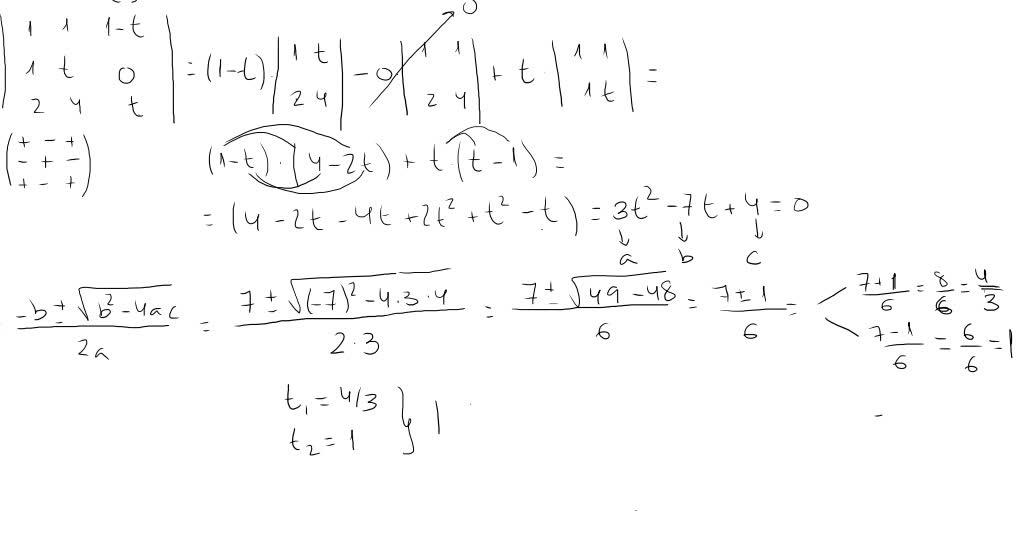 | 1 1 1-t |
| 1 t 0 | = (1-t)·| 1 t | - 0 | 1 1 | + t·| 1 1 | =
| 2 4 t | | 2 4 | | 2 4 | | 1 t |
0
( + - + )
( - + - ) (1-t)·(4-2t) + t·(t-1) =
( + - + )
= (4-2t-4t+2t²+t²-t) = 3t²-7t+4=0
↓ ↓ ↓
a b c
-b±√(b²-4ac) / 2a = 7±√((-7)²-4·3·4) / 2·3 = 7±√(49-48) / 6 = 7±1 / 6 =
7+1 / 6 = 8/6 = 4/3
7-1 / 6 = 6/6 = 1
t₁ = 4/3
t₂ = 1 } |